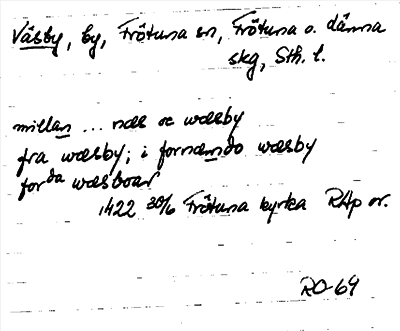 Väsby, by, Frötuna sn, Frötuna o. Länna
skg, Sth. l.
millan ... næs oc wæsby
fra wæsby; i fornæmdo wæsby
forda wæsboar
1422 30/6 Frötuna kyrka RAp or.
RO-69